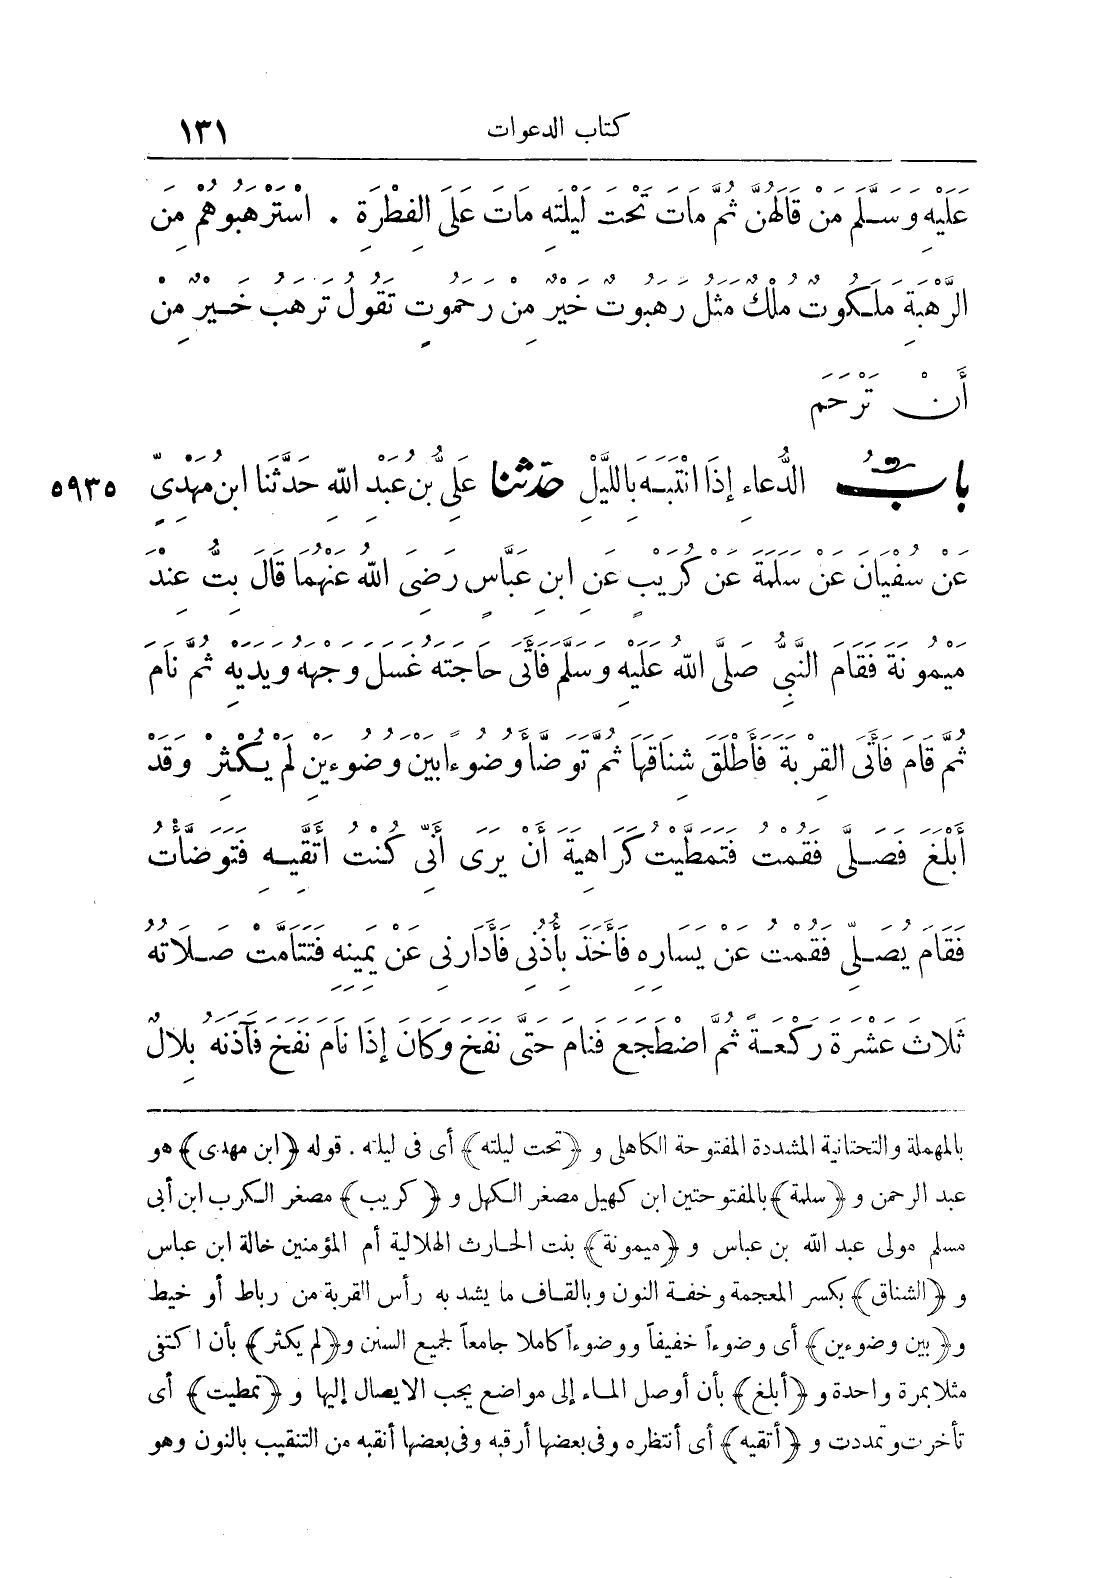 كتاب الدعوات ١٣١
عَلَيْهِ وَسَلَّمَ مَنْ قَالَهُنَّ ثُمَّ مَاتَ تَحْتَ لَيْلَتِهِ مَاتَ عَلَى الفِطْرَةِ . اسْتَرْهَبُوهُمْ مِنَ
الرَّهْبَةِ مَلَكُوتٌ مُلْكٌ مَثَلُ رَهَبُوتٌ خَيْرٌ مِنْ رَحَمُوتٍ تَقُولُ تَرْهَبُ خَيْرٌ مِنْ
أَنْ تَرْحَمَ
بابُ الدُّعَاءِ إِذَا انْتَبَهَ بِاللَّيْلِ حدثنا عَلِيُّ بن عَبْدِ اللهِ حَدَّثَنَا ابنُ مَهْدِيٍّ ٥٩٣٥
عَنْ سُفْيَانَ عَنْ سَلَمَةَ عَنْ كُرَيْبٍ عَنِ ابنِ عَبَّاسٍ رَضِىَ اللهُ عَنْهُمَا قَالَ بِتُّ عِنْدَ
مَيْمُونَةَ فَقَامَ النَّبِىُّ صَلَّى اللهُ عَلَيْهِ وَسَلَّمَ فَأَتَى حَاجَتَهُ غَسَلَ وَجْهَهُ وَيَدَيْهِ ثُمَّ نَامَ
ثُمَّ قَامَ فَأَتَى القِرْبَةَ فَأَطْلَقَ شِنَاقَهَا ثُمَّ تَوَضَّأَ وُضُوءًا بَيْنَ وُضُوءَيْنِ لَمْ يُكْثِرْ وَقَدْ
أَبْلَغَ فَصَلَّى فَقُمْتُ فَتَمَطَّيْتُ كَرَاهِيَةَ أَنْ يَرَى أَنِّى كُنْتُ أَتَّقِيهِ فَتَوَضَّأْتُ
فَقَامَ يُصَلِّى فَقُمْتُ عَنْ يَسَارِهِ فَأَخَذَ بِأُذُنِى فَأَدَارَنِى عَنْ يَمِينِهِ فَتَتَامَّتْ صَلَاتُهُ
ثَلَاثَ عَشْرَةَ رَكْعَةً ثُمَّ اضْطَجَعَ فَنَامَ حَتَّى نَفَخَ وَكَانَ إِذَا نَامَ نَفَخَ فَآذَنَهُ بِلَالٌ
بالمهملة والتحتانية المشددة المفتوحة الكاهلى و ﴿تحت ليلته﴾ أى فى ليله . قوله ﴿ابن مهدى﴾ هو
عبد الرحمن و ﴿سلمة﴾ بالمفتوحتين ابن كهيل مصغر الكهل و ﴿كريب﴾ مصغر الكرب ابن أبى
مسلم مولى عبد الله بن عباس و ﴿ميمونة﴾ بنت الحارث الهلالية أم المؤمنين خالة ابن عباس
و ﴿الشناق﴾ بكسر المعجمة وخفة النون وبالقاف ما يشد به رأس القربة من رباط أو خيط
و﴿بين وضوءين﴾ أى وضوءاً خفيفاً ووضوءاً كاملا جامعاً لجميع السنن و﴿لم يكثر﴾ بأن اكتفى
مثلا بمرة واحدة و ﴿أبلغ﴾ بأن أوصل الماء إلى مواضع يجب الايصال إليها و ﴿تمطيت﴾ أى
تأخرت وتمددت و ﴿أتقيه﴾ أى أنتظره وفى بعضها أرقبه وفى بعضها أنقبه من التنقيب بالنون وهو